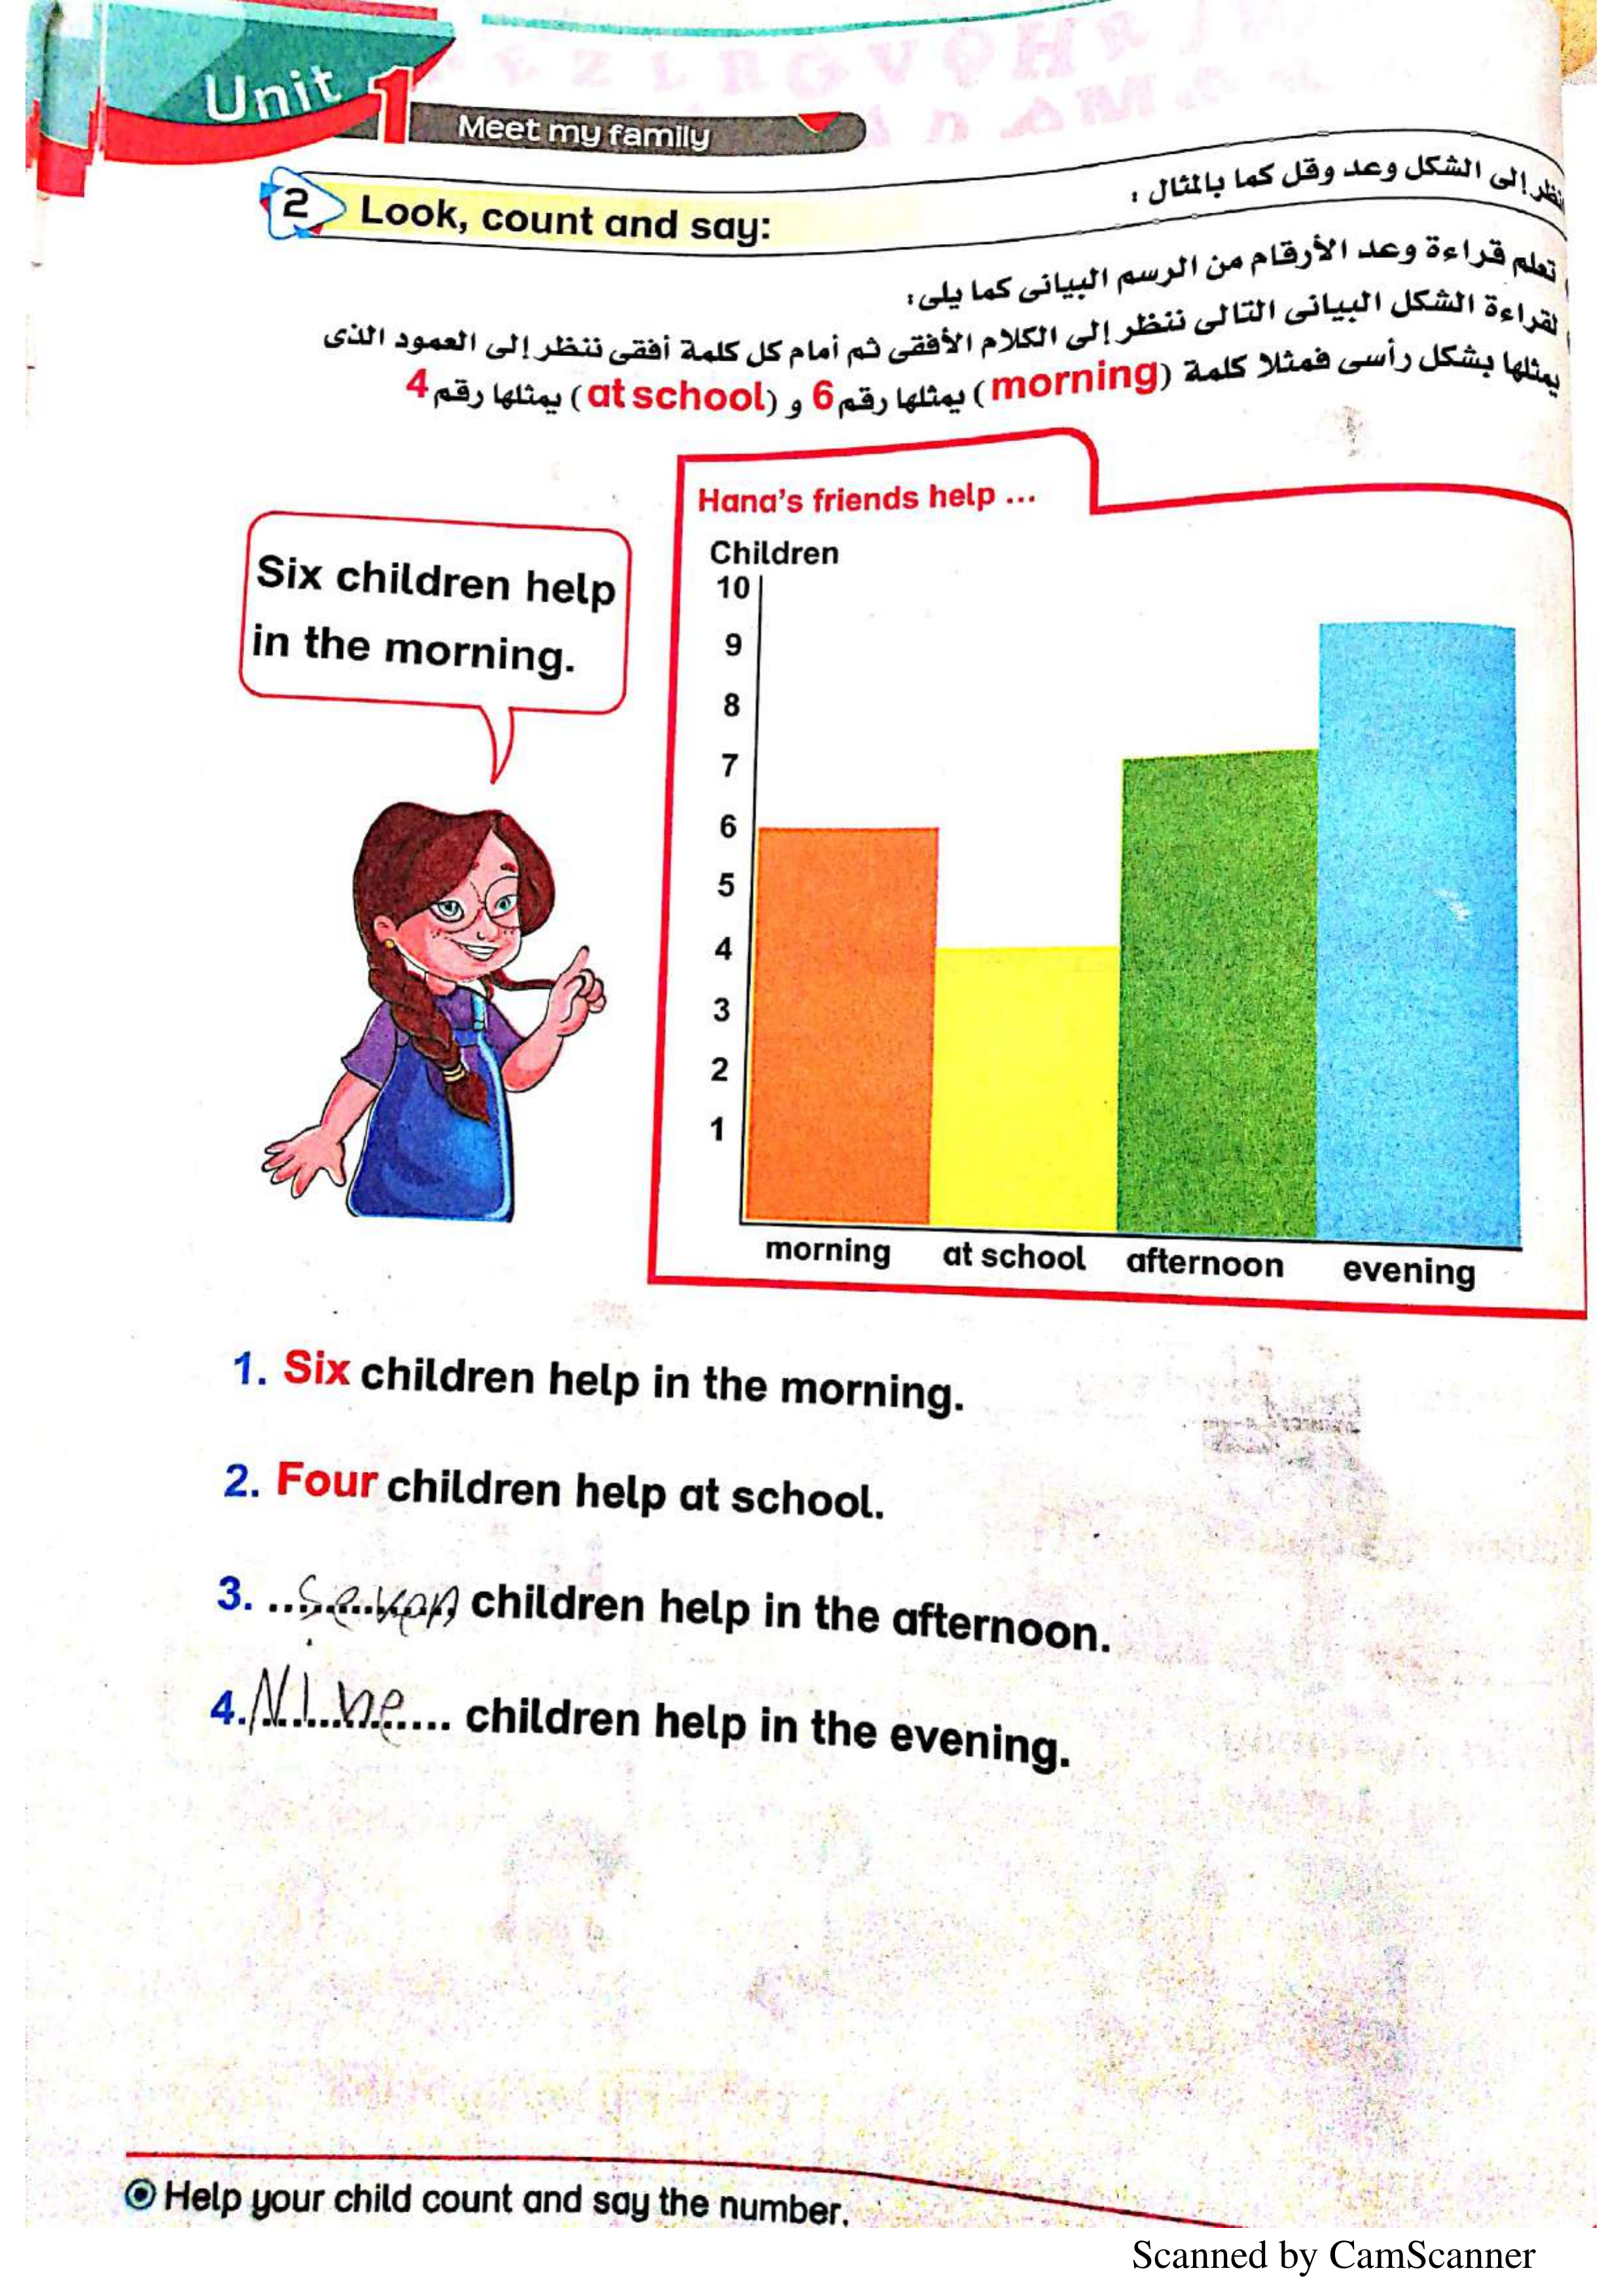 Unit 1
Meet my family
2 Look, count and say:
نظر إلى الشكل وعد وقل كما بالمثال :
تعلم قراءة وعد الأرقام من الرسم البيانى كما يلى:
لقراءة الشكل البيانى التالى ننظر إلى الكلام الأفقى ثم أمام كل كلمة أفقى ننظر إلى العمود الذى
يمثلها بشكل رأسى فمثلا كلمة (morning) يمثلها رقم 6 و (at school) يمثلها رقم 4
Six children help
in the morning.
Hana's friends help ...
Children
10
9
8
7
6
5
4
3
2
1
morning at school afternoon evening
1. Six children help in the morning.
2. Four children help at school.
3. Seven children help in the afternoon.
4. Nine children help in the evening.
Help your child count and say the number.
Scanned by CamScanner